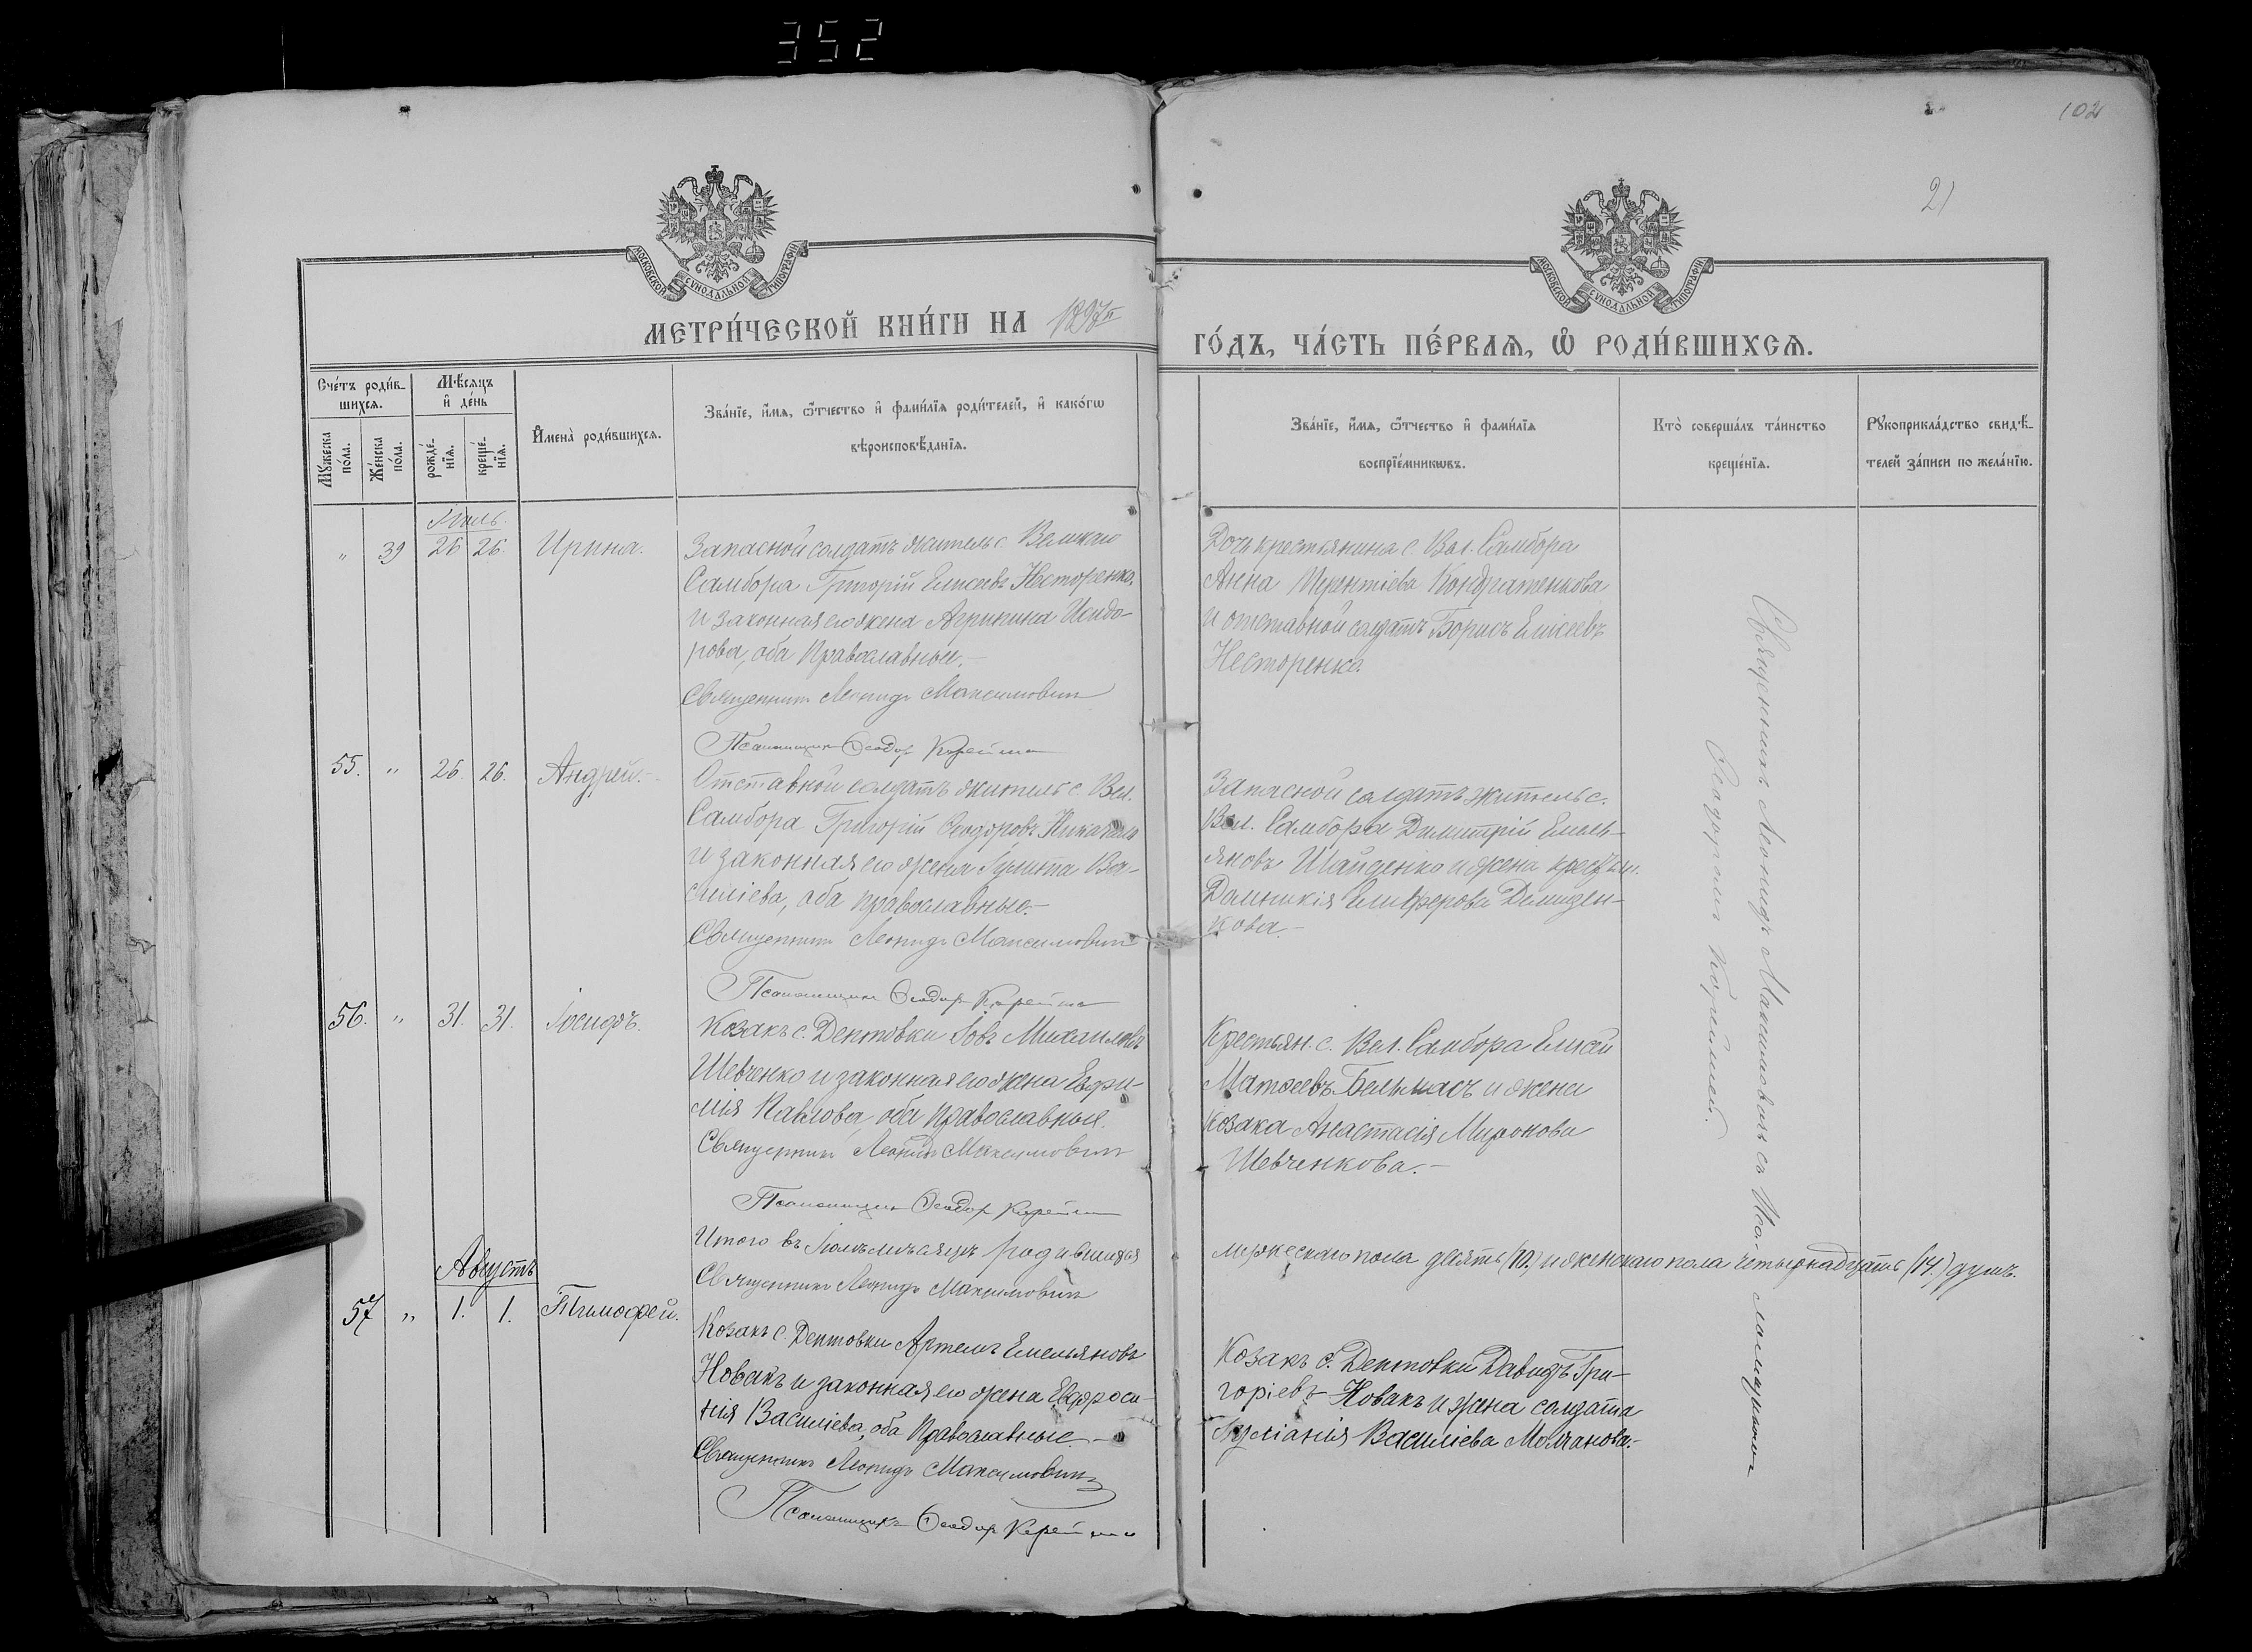 352
102
21
МОСКОВСКОЙ СУНОДАЛЬНОЙ ТИПОГРАФІИ
МОСКОВСКОЙ СУНОДАЛЬНОЙ ТИПОГРАФІИ
МЕТРИ́ЧЕСКОЙ КНИ́ГИ НА 1897й
ГО́ДЪ, ЧА́СТЬ ПЕ́РВАѦ, Ѽ РОДИ́ВШИХСѦ.
Сче́тъ роди́в-
шихсѧ.
Мꙋжеска
по́ла.
Же́нска
по́ла.
Мѣ́сѧцъ
и҆ де́нь
рожде́-
нїѧ.
креще́-
нїѧ.
И҆мена̀ роди́вшихсѧ.
Зва́нїе, и҆́мѧ, ѻ҆́тчество и҆ фами́лїѧ роди́телей, и҆ како́гѡ
вѣроисповѣ́данїѧ.
Зва́нїе, и҆́мѧ, ѻ҆́тчество и҆ фами́лїѧ
воспрїе́мникѡвъ.
Кто̀ соверша́лъ та́инство
креще́нїѧ.
Рꙋкоприкла́дство свидѣ́-
телей за́писи по жела́нїю.
Іюль.
" 39 26 26. Ирина.
Запасной солдатъ житель с. Великаго
Самбора Григорій Елисеевъ Несторенко,
и законная его жена Агрипина Исидо-
рова, оба Православные.-
Священникъ Леонидъ Максимовичъ
Псаломщикъ Ѳеодоръ Корейша
Дочь крестьянина с. Вел. Самбора
Анна Терентіева Кондратенкова
и отставной солдатъ Борисъ Елисеевъ
Несторенко.
55. " 26. 26. Андрей.-
Отставной солдатъ житель с. Вел.
Самбора Григорій Ѳеодоровъ
и законная его жена Ва-
силіева, оба православные.-
Священникъ Леонидъ Максимовичъ
Псаломщикъ Ѳеодоръ Корейша
Запасной солдатъ житель с.
Вел. Самбора Димитрій Емель-
яновъ и жена крестьян.
Домникія Елиферова Демиден-
кова.-
56. " 31. 31. Іосифъ.
Козакъ с. Дептовки Іовъ Михаиловъ
Шевченко и законная его жена Евфи-
мія Павлова, оба православныя.
Священникъ Леонидъ Максимовичъ
Псаломщикъ Ѳеодоръ Корейша
Крестьян. с. Вел. Самбора Елисей
Матѳеевъ Бельмасъ и жена
козака Анастасія Миронова
Шевченкова.-
Итого въ Іюлѣ мѣсяцѣ родившихся
мужескаго пола десять (10.) и женскаго пола четырнадцать (14.) душъ.
Священникъ Леонидъ Максимовичъ
Августъ
57 " 1. 1. Тимофей.
Козакъ с. Дептовки Артемъ Емельяновъ
Новакъ и законная его жена Евфроси-
нія Василіева, оба Православные.-
Священникъ Леонидъ Максимовичъ
Псаломщикъ Ѳеодоръ Корейша
Козакъ с. Дептовки Давидъ Гри-
горіевъ Новакъ и жена солдата
Іуліанія Василіева Молчанова.-
Священникъ Леонидъ Максимовичъ съ Пса- ломщикомъ
Ѳеодоромъ Корейшей.